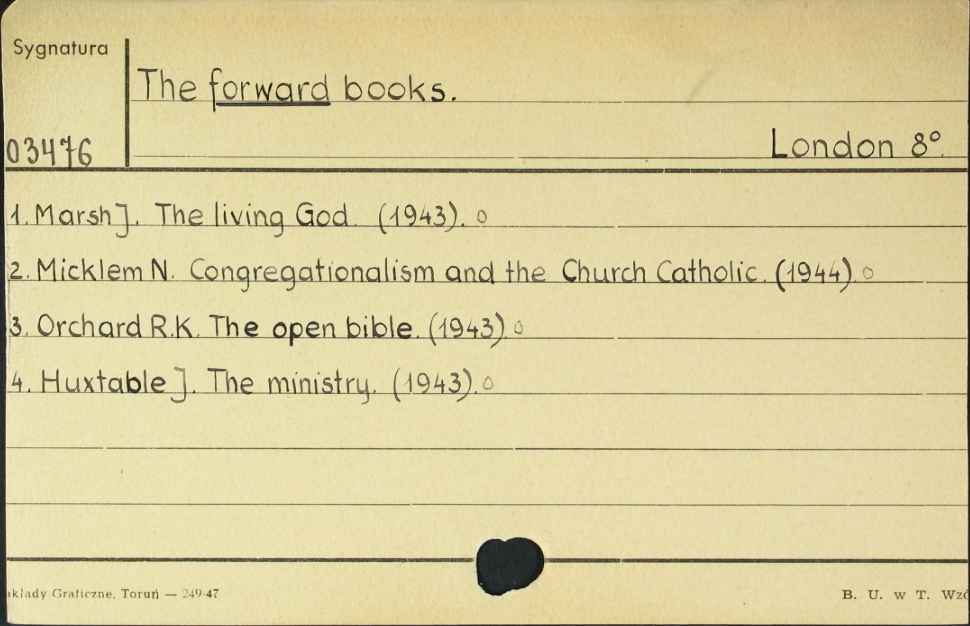 Sygnatura
The forward books.
03476
London 8°.
1. Marsh J. The living God. (1943). o
2. Micklem N. Congregationalism and the Church Catholic. (1944) o
3. Orchard R.K. The open bible. (1943) o
4. Huxtable J. The ministry. (1943). o
akłady Graficzne, Toruń — 249-47
B. U. w T. Wzó